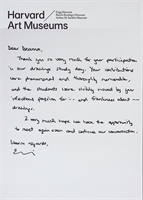 Harvard
Art Museums
Fogg Museum
Busch-Reisinger Museum
Arthur M. Sackler Museum
Dear Deanna,
Thank you so very much for your participation
in our drawings study day. Your contributions
were phenomenal and thoroughly memorable,
and the students were visibly moved by your
infectious passion for — and freshness about —
drawings.
I very much hope we have the opportunity
to meet again soon and continue our conversation.
Warm regards,